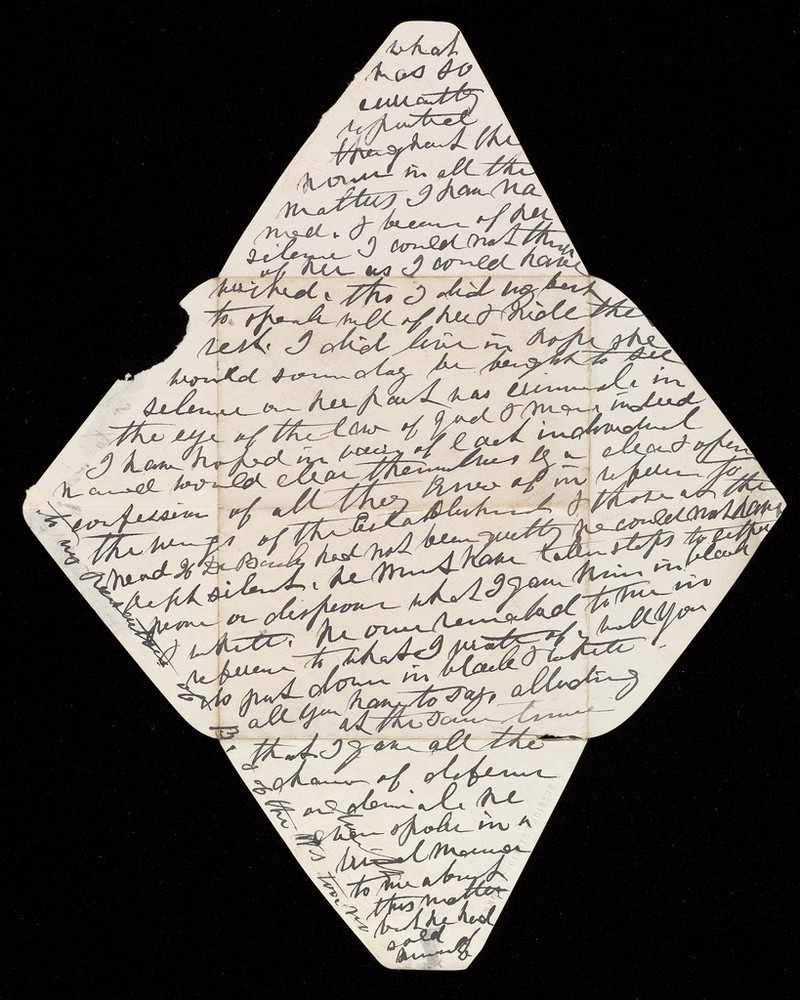 what
was so
currently
reported
throughout the
house in all the
matters I have na
med. & because of her
silence I could not think
of her as I could have
wished. tho I did my best
to speak well of her & hide the
rest. I did live in hope she
would some day be brought to see
silence on her part was criminal. in
the eye of the law of God & man. indeed
I have hoped in of each individual
named would clear themselves by a clear & open
confession of all they knew of in reference to
the wings of the Establishment & those at the
head If De had not been guilty he could not have
kept silent. he must have taken steps to either
prove or disprove what I gave him in black
& white. he once remarked to me in
reference to what I wrote of will you
to put down in black & white
all you have to say. alluding
at the same time
that I gave all the
chance of defence
or denial. he
even spoke in a
manner
to me about
this matter
but he had
sold
himself
to no
of
B.
& of
the
too no